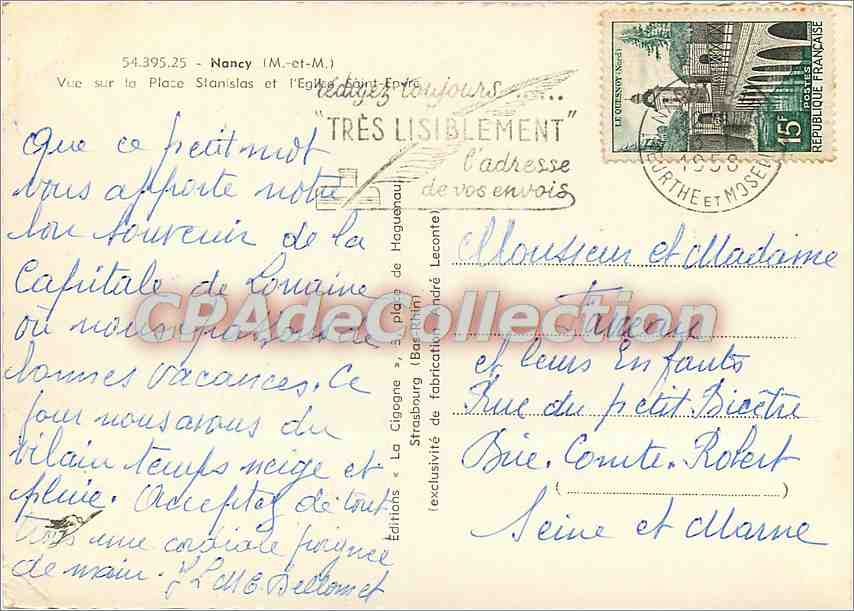 54.395.25 - Nancy (M.-et-M.)
Vue sur la Place Stanislas et l'Eglise Saint-Epvre
rédigez toujours ......
"TRÈS LISIBLEMENT"
l'adresse
de vos envois
LE QUESNOY (Nord)
15F
POSTES
RÉPUBLIQUE FRANÇAISE
1958
MEURTHE ET MOSELLE
Que ce petit mot
vous apporte notre
bon souvenir de la
Capitale de Lorraine
où nous passons de
bonnes vacances. Ce
jour nous avons du
vilain temps neige et
pluie. Acceptez de tout
une cordiale poignée
de main.
Editions « La Cigogne », 3, place de Haguenau,
Strasbourg (Bas-Rhin)
(exclusivité de fabrication André Leconte)
CPAdeCollection
Monsieur et Madame
et leurs Enfants
Rue du petit Bicêtre
Brie. Comte. Robert
Seine et Marne